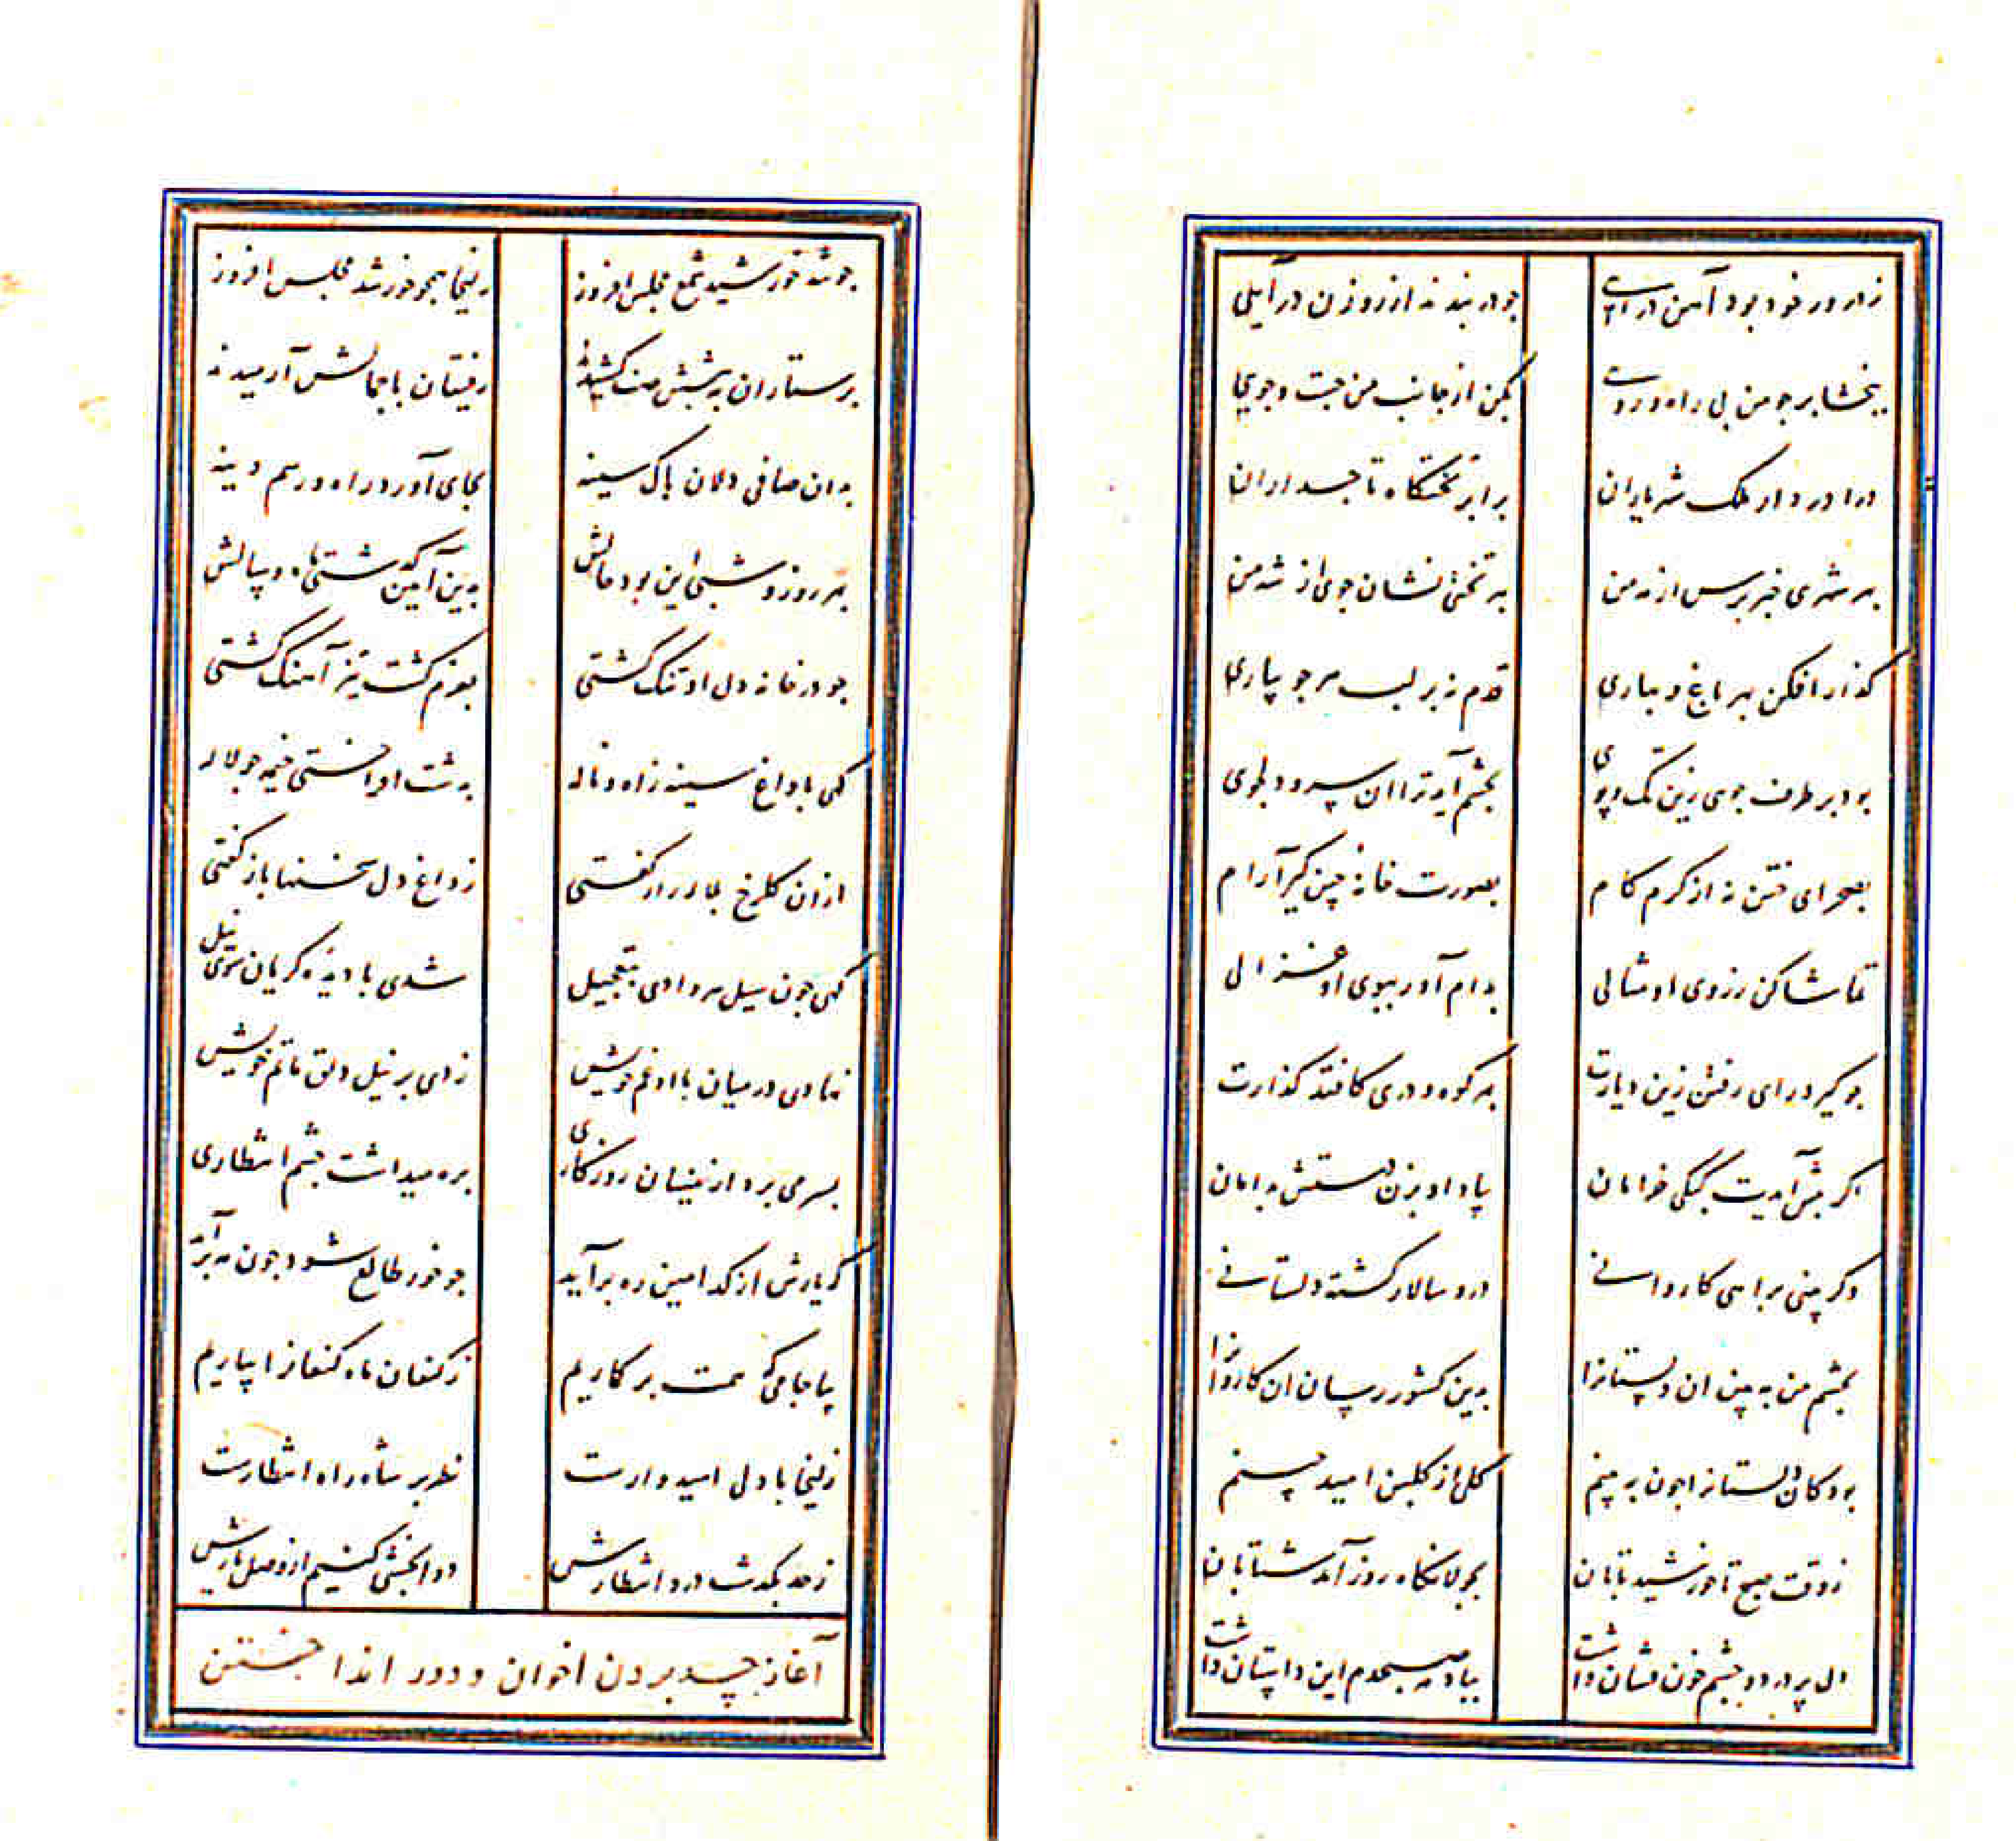 ز در در خود بود آهن در آیی چو در بندند از روزن در آیی
ببخشا بر چو من بی راه و رویی بکن از جانب من جست و جویی
درا در دار ملک شهریاران برابر تختگاه تاجداران
بهر شهری خبر پرس از مه من بهر تختی نشان جوی از شه من
گذار افکن بهر باغ و بهاری قدم نه بر لب هر جویباری
بود بر طرف جوی زین تک وپوی بچشم آید ترا ان سرو دلجوی
بصحرای ختن نه از کرم کام بصورت خانه چین گیر آرام
تماشا کن ز روی او مثالی بدام آور ببوی او غزالی
چو گیرد رای رفتن زین دیارت بهر کوه و دری کافتد گذارت
اگر پیش آیدت کبکی خرامان بیاد او بزن دستش بدامان
وگر بینی براهی کاروانی درو سالار گشته دلستانی
بچشم من ببین ان دلستانرا بدین کشور رسان ان کاروانرا
بود کان دلستانرا چون ببینم گلی از گلبن امید چینم
ز وقت صبح تا خورشید تابان بجولانگاه روز آمد شتابان
دلی پر درد و چشم خون فشان داشت بباد صبحدم این داستان داشت
چو شد خورشید شمع مجلس افروز زلیخا همچو خورشد مجلس افروز
پرستاران به پیشش صف کشیدند رفیقان با جمالش آرمیدند
بدان صافی دلان پاک سینه بجای آورد راه و رسم دینه
بهر روز و شبی این بود حالش بدین آیین گذشتی ماه و سالش
چو در خانه دل او تنگ گشتی بعزم گشت تیز آهنگ گشتی
گهی با داغ سینه ز آه و ناله بدشت افراختی خیمه چو لاله
ازان گلرخ بلاله راز گفتی ز داغ دل سخنها باز گفتی
گهی چون سیل هر وادی بتعجیل شدی با دیده گریان سوی نیل
نهادی در میان با او غم خویش زدی بر نیل دلق ماتم خویش
بسر می برد ازینسان روزگاری بره میداشت چشم انتظاری
که یارش از کدامین ره برآید چو خور طالع شود چون مه برآید
بیا جامی که همت بر گماریم ز کنعان ماه کنعانرا بیاریم
زلیخا با دل امیدوارست نظر بر شاه راه انتظارست
ز حد بگذشت درد انتظارش دوا بخشی کنیم از وصل یارش
آغاز حسد بردن اخوان و دور انداختن